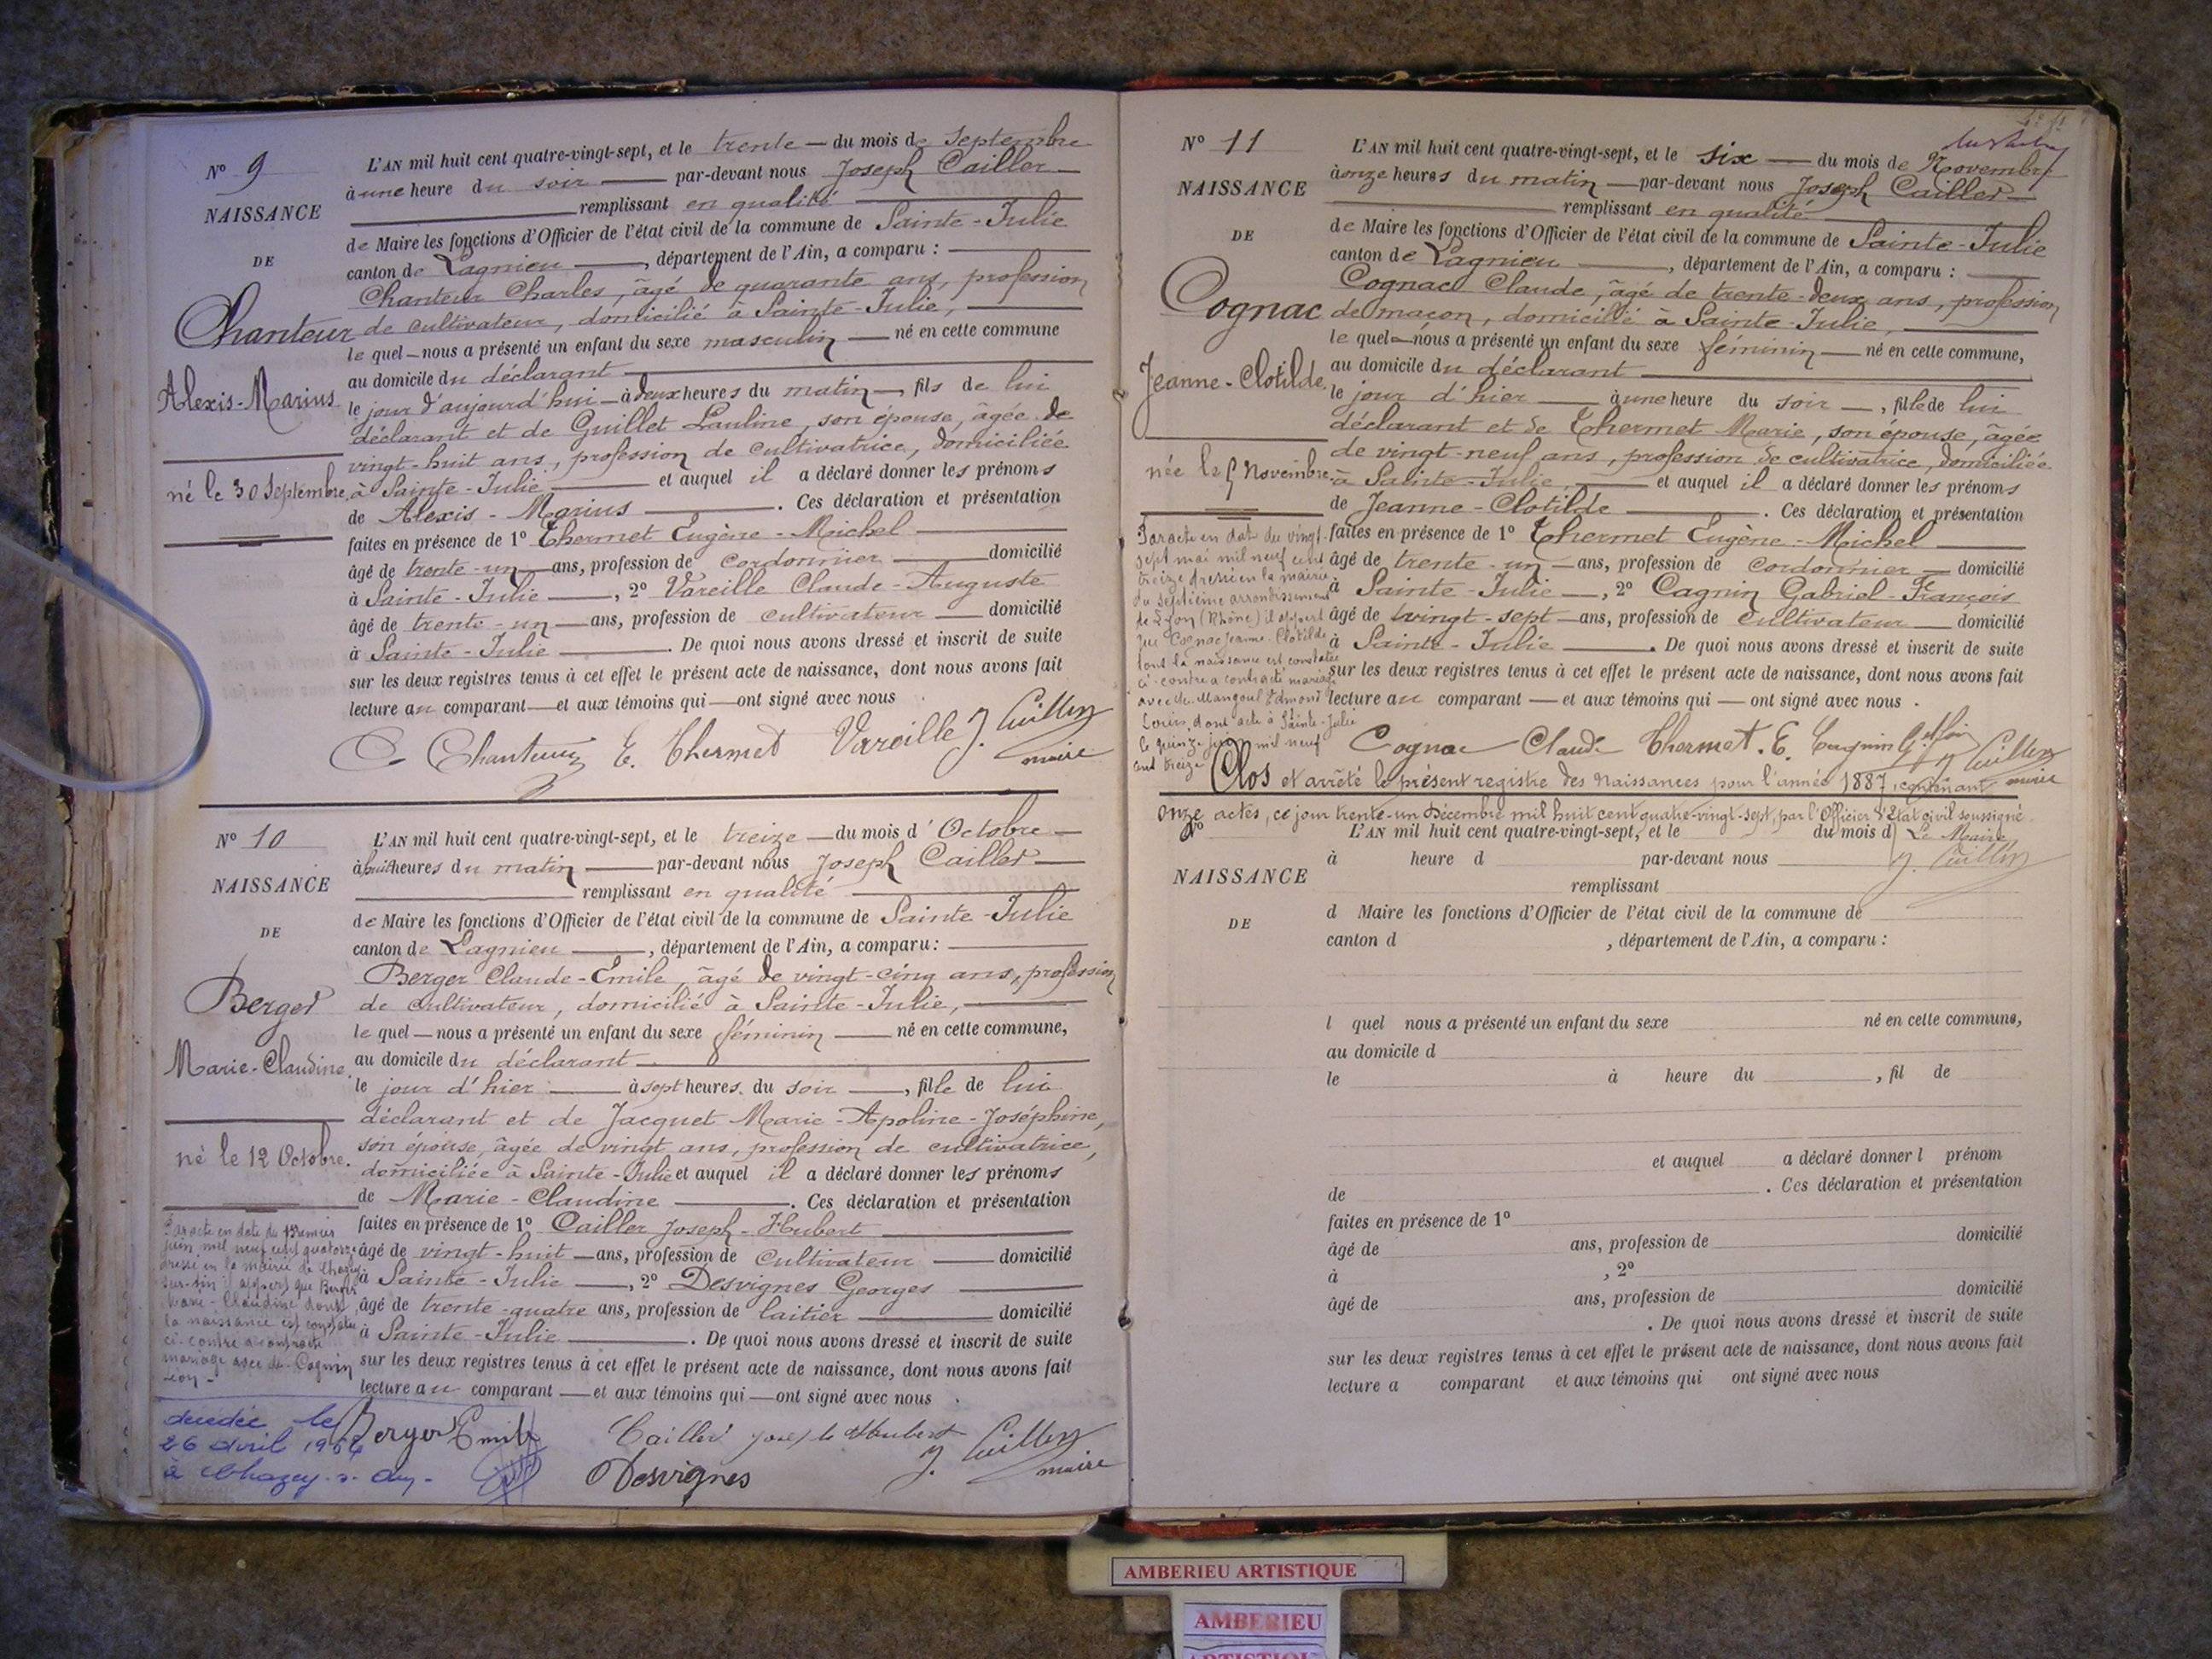 N° 9
NAISSANCE
DE
Chanteur
Alexis-Marius
né le 30 Septembre.
L'AN mil huit cent quatre-vingt-sept, et le trente — du mois de Septembre
à une heure du soir — par-devant nous Joseph Cailler —
remplissant en qualité
de Maire les fonctions d'Officier de l'état civil de la commune de Sainte-Julie
canton de Lagnieu —, département de l'Ain, a comparu :
Chanteur Charles, âgé de quarante ans, profession
de cultivateur, domicilié à Sainte-Julie,
le quel — nous a présenté un enfant du sexe masculin — né en cette commune
au domicile du déclarant
le jour d'aujourd'hui — à deux heures du matin —, fils de lui
déclarant et de Guillet Pauline, son épouse, âgée de
vingt-huit ans, profession de cultivatrice, domiciliée
à Sainte-Julie — et auquel il a déclaré donner les prénoms
de Alexis-Marius —. Ces déclaration et présentation
faites en présence de 1° Thermet Eugène-Michel
âgé de trente-un — ans, profession de cordonnier — domicilié
à Sainte-Julie —, 2° Vareille Claude-Auguste
âgé de trente-un — ans, profession de cultivateur — domicilié
à Sainte-Julie —. De quoi nous avons dressé et inscrit de suite
sur les deux registres tenus à cet effet le présent acte de naissance, dont nous avons fait
lecture au comparant — et aux témoins qui — ont signé avec nous
C Chanteur E. Thermet Vareille J. Cailler
maire
N° 10
NAISSANCE
DE
Berger
Marie-Claudine.
né le 12 Octobre.
Par acte en date du premier
juin mil neuf cent quatorze
dressé en la mairie de Chazey
sur-Ain il appert que Berger
Marie-Claudine dont
la naissance est constatée
ci-contre a contracté
mariage avec de Cognin
Léon -
décédée le
26 avril 1964
à Chazey-s-Ain-
L'AN mil huit cent quatre-vingt-sept, et le treize — du mois d'Octobre —
à huit heures du matin — par-devant nous Joseph Cailler —
remplissant en qualité
de Maire les fonctions d'Officier de l'état civil de la commune de Sainte-Julie
canton de Lagnieu —, département de l'Ain, a comparu :
Berger Claude-Emile, âgé de vingt-cinq ans, profession
de cultivateur, domicilié à Sainte-Julie,
le quel — nous a présenté un enfant du sexe féminin — né en cette commune,
au domicile du déclarant
le jour d'hier — à sept heures du soir —, fille de lui
déclarant et de Jacquet Marie-Apoline-Joséphine,
son épouse, âgée de vingt ans, profession de cultivatrice,
domiciliée à Sainte-Julie et auquel il a déclaré donner les prénoms
de Marie-Claudine —. Ces déclaration et présentation
faites en présence de 1° Cailler Joseph-Hubert
âgé de vingt-huit — ans, profession de cultivateur — domicilié
à Sainte-Julie —, 2° Desvignes Georges
âgé de trente-quatre ans, profession de laitier — domicilié
à Sainte-Julie —. De quoi nous avons dressé et inscrit de suite
sur les deux registres tenus à cet effet le présent acte de naissance, dont nous avons fait
lecture au comparant — et aux témoins qui — ont signé avec nous
Berger Emile Cailler Joseph Hubert J. Cailler
Desvignes maire
N° 11
NAISSANCE
DE
Cognac
Jeanne-Clotilde.
née le 5 Novembre
Par acte en date du vingt-
sept mai mil neuf cent
treize dressé en la mairie
du septième arrondissement
de Lyon (Rhône) il appert
que Cognac Jeanne-Clotilde
dont la naissance est constatée
ci-contre a contracté mariage
avec de Mangoul Edmond
Louis, dont acte à Sainte-Julie
le quinze juin mil neuf
cent treize
L'AN mil huit cent quatre-vingt-sept, et le six — du mois de Novembre
à onze heures du matin — par-devant nous Joseph Cailler —
remplissant en qualité
de Maire les fonctions d'Officier de l'état civil de la commune de Sainte-Julie
canton de Lagnieu —, département de l'Ain, a comparu :
Cognac Claude, âgé de trente-deux ans, profession
de maçon, domicilié à Sainte-Julie,
le quel — nous a présenté un enfant du sexe féminin — né en cette commune,
au domicile du déclarant
le jour d'hier — à une heure du soir —, fille de lui
déclarant et de Thermet Marie, son épouse, âgée
de vingt-neuf ans, profession de cultivatrice, domiciliée
à Sainte-Julie — et auquel il a déclaré donner les prénoms
de Jeanne-Clotilde —. Ces déclaration et présentation
faites en présence de 1° Thermet Eugène-Michel
âgé de trente-un — ans, profession de cordonnier — domicilié
à Sainte-Julie —, 2° Cagnin Gabriel-François
âgé de vingt-sept — ans, profession de cultivateur — domicilié
à Sainte-Julie —. De quoi nous avons dressé et inscrit de suite
sur les deux registres tenus à cet effet le présent acte de naissance, dont nous avons fait
lecture au comparant — et aux témoins qui — ont signé avec nous.
Cognac Claude Thermet. E. Cagnin J Cailler
maire
Clos et arrêté le présent registre des Naissances pour l'année 1887, contenant
onze actes, ce jour trente-un Décembre mil huit cent quatre-vingt-sept, par l'Officier d'État civil soussigné.
Le Maire
J. Cailler
N°
NAISSANCE
DE
L'AN mil huit cent quatre-vingt-sept, et le du mois d
à heure d par-devant nous
remplissant
d Maire les fonctions d'Officier de l'état civil de la commune de
canton d , département de l'Ain, a comparu :
l quel nous a présenté un enfant du sexe né en cette commune,
au domicile d
le à heure du , fil de
et auquel a déclaré donner l prénom
de . Ces déclaration et présentation
faites en présence de 1°
âgé de ans, profession de domicilié
à , 2°
âgé de ans, profession de domicilié
. De quoi nous avons dressé et inscrit de suite
sur les deux registres tenus à cet effet le présent acte de naissance, dont nous avons fait
lecture a comparant et aux témoins qui ont signé avec nous
AMBERIEU ARTISTIQUE
AMBERIEU
ARTISTIQUE